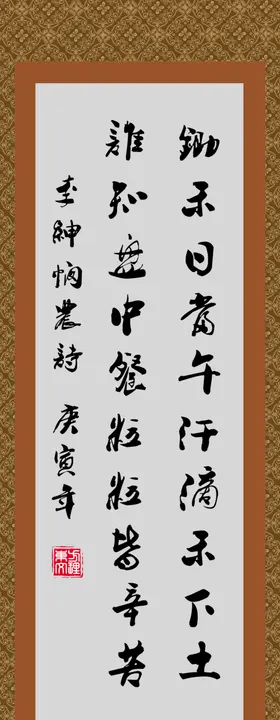 鋤禾日當午汗滴禾下土
誰知盤中餐粒粒皆辛苦
李紳憫農詩 庚寅年